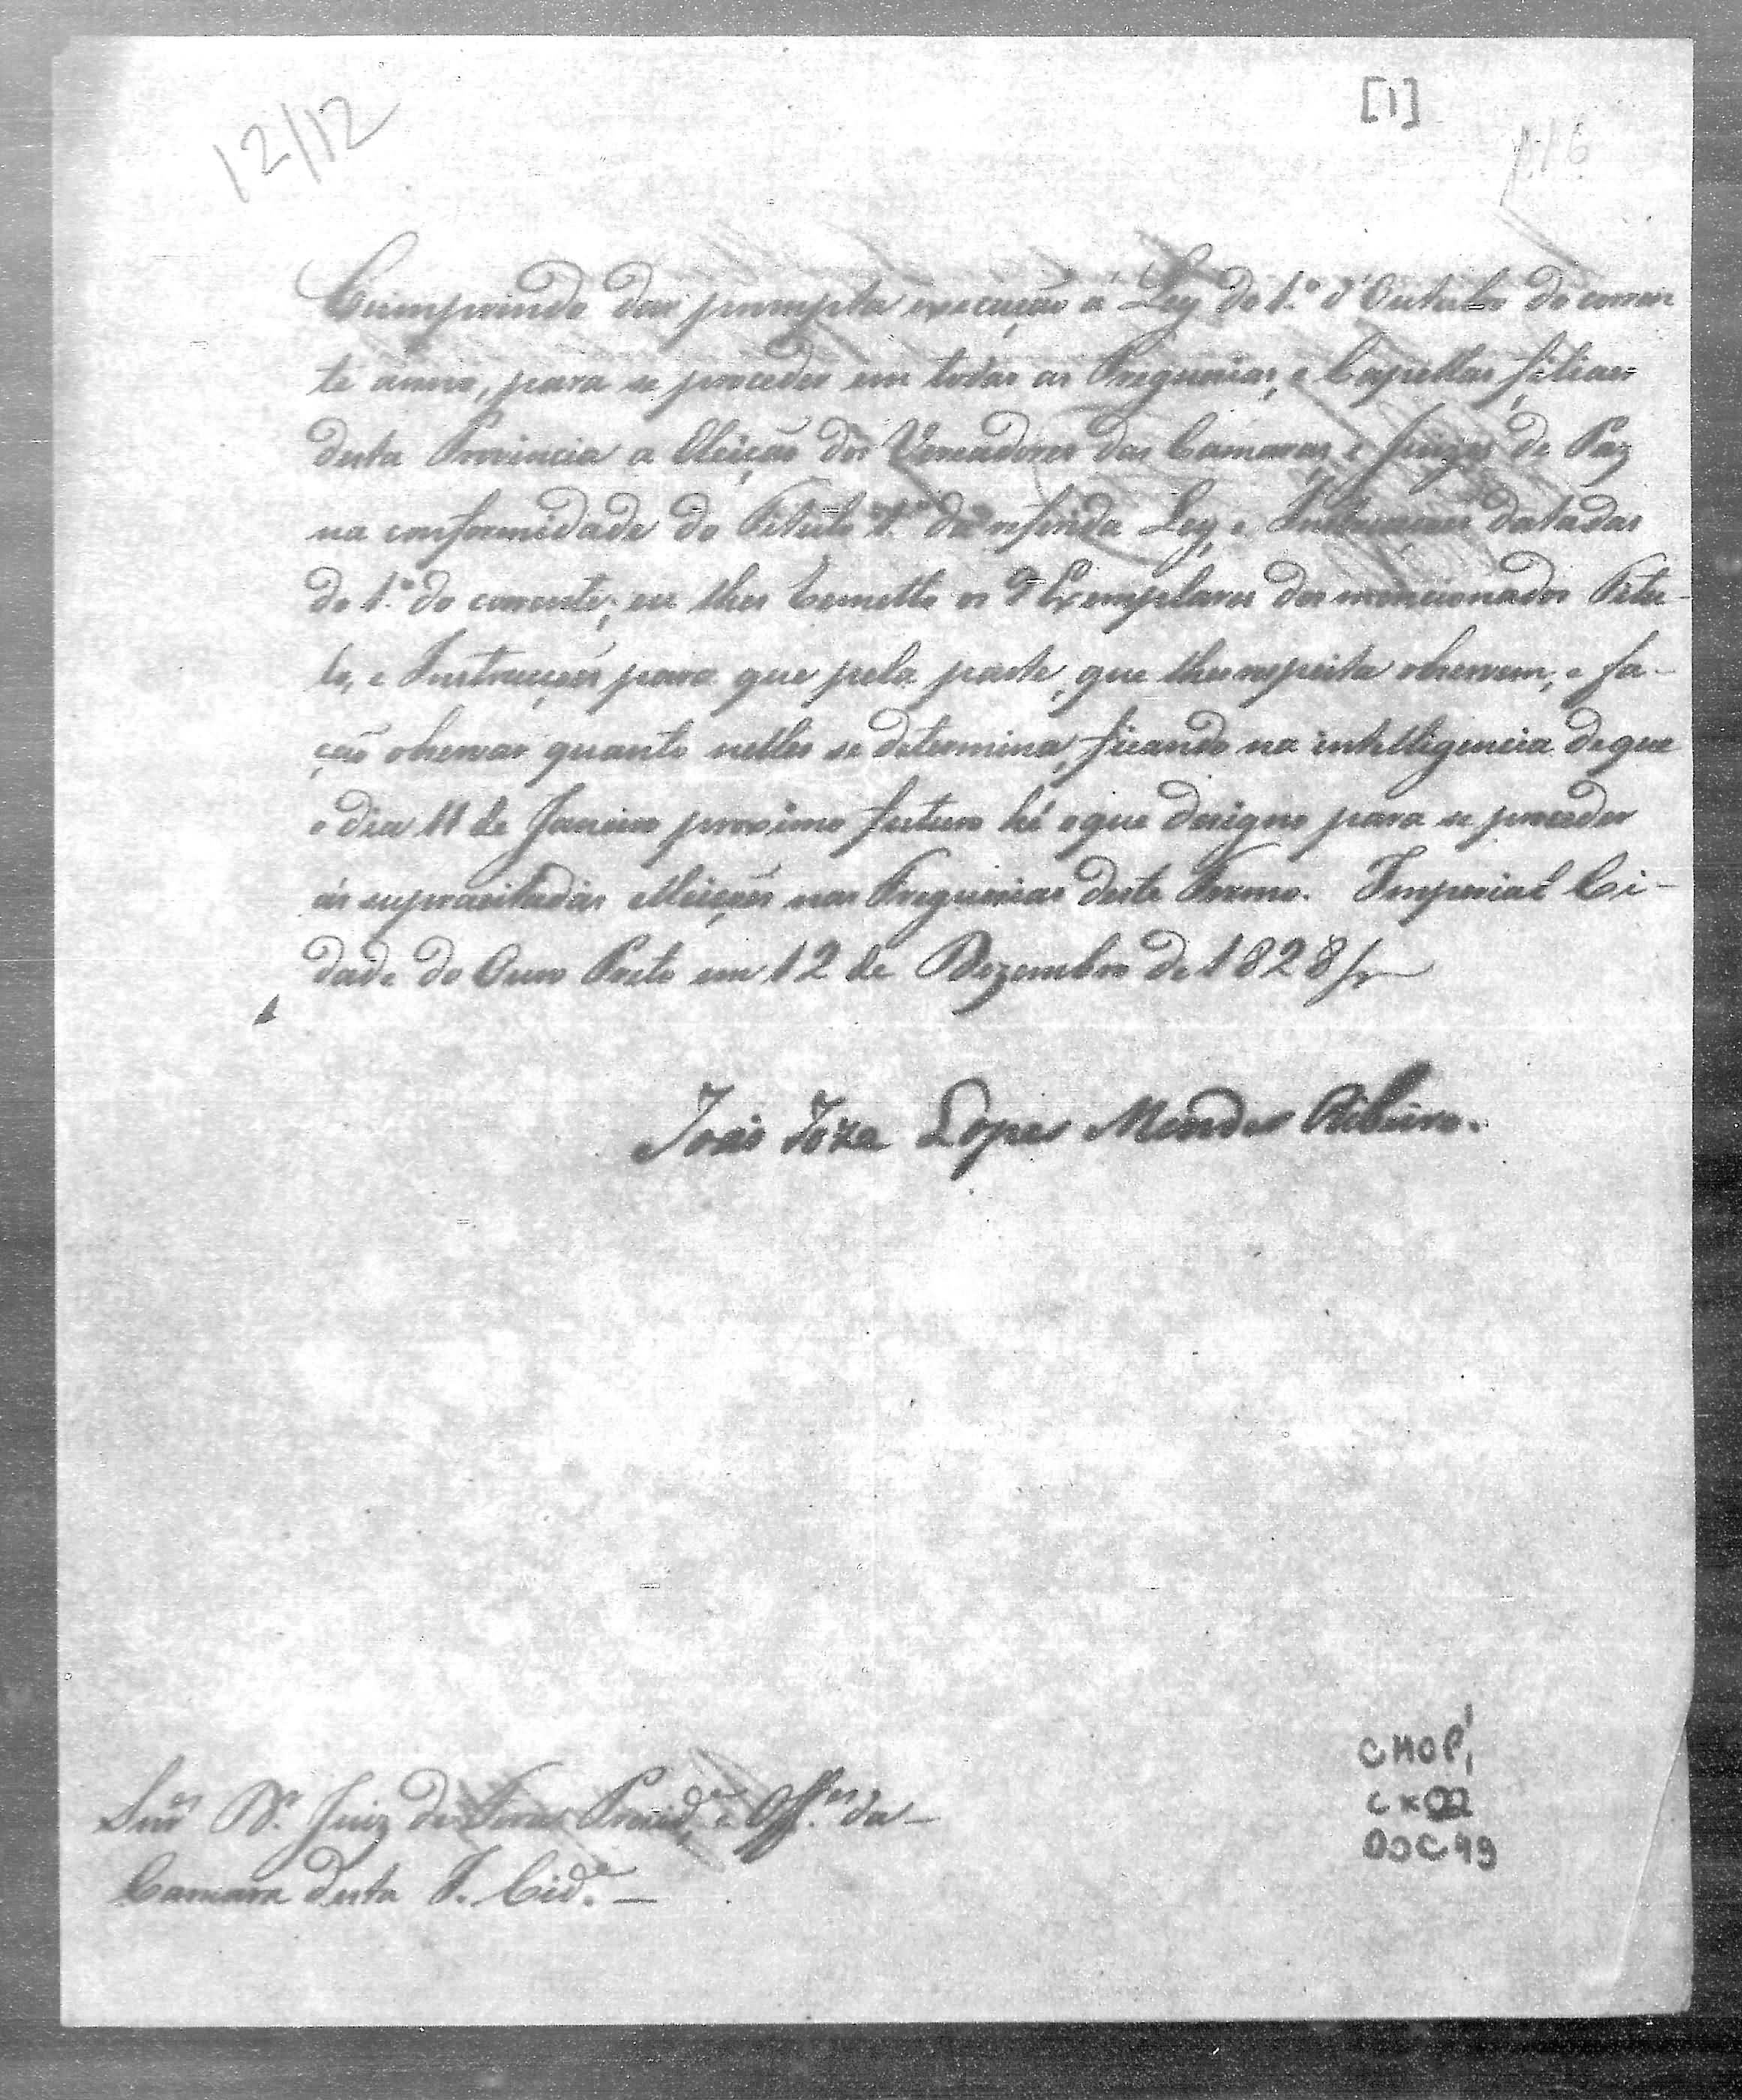 12/12
[1]
Cumprindo dar prompta execução á Ley do 1.º d'Outubro do corren
te anno, para se proceder em todas as Freguezias, e Capellas filiaes
desta Provincia a Eleição dos Vereadores das Camaras, e Juizes de Paz
na conformidade do Titulo 1.º da referida Ley, e Instrucções datadas
do 1.º do corrente; eu lhes remetto os Exemplares dos mencionados Titu-
lo, e Instrucções para que pela parte, que lhes respeita observem, e fa-
ção observar quanto nelles se determina, ficando na intelligencia de que
o dia 11 de Janeiro proximo futuro hé o que designo para se proceder
ás supracitadas Eleições nas Freguezias deste Termo. Imperial Ci-
dade do Ouro Preto em 12 de Dezembro de 1828
João Joze Lopes Mendes Ribeiro.
Snr.es D.r Juiz de Fora Presid.e e Off.es da
Camara desta I. Cid.e
CMOP
CX02
DOC 49